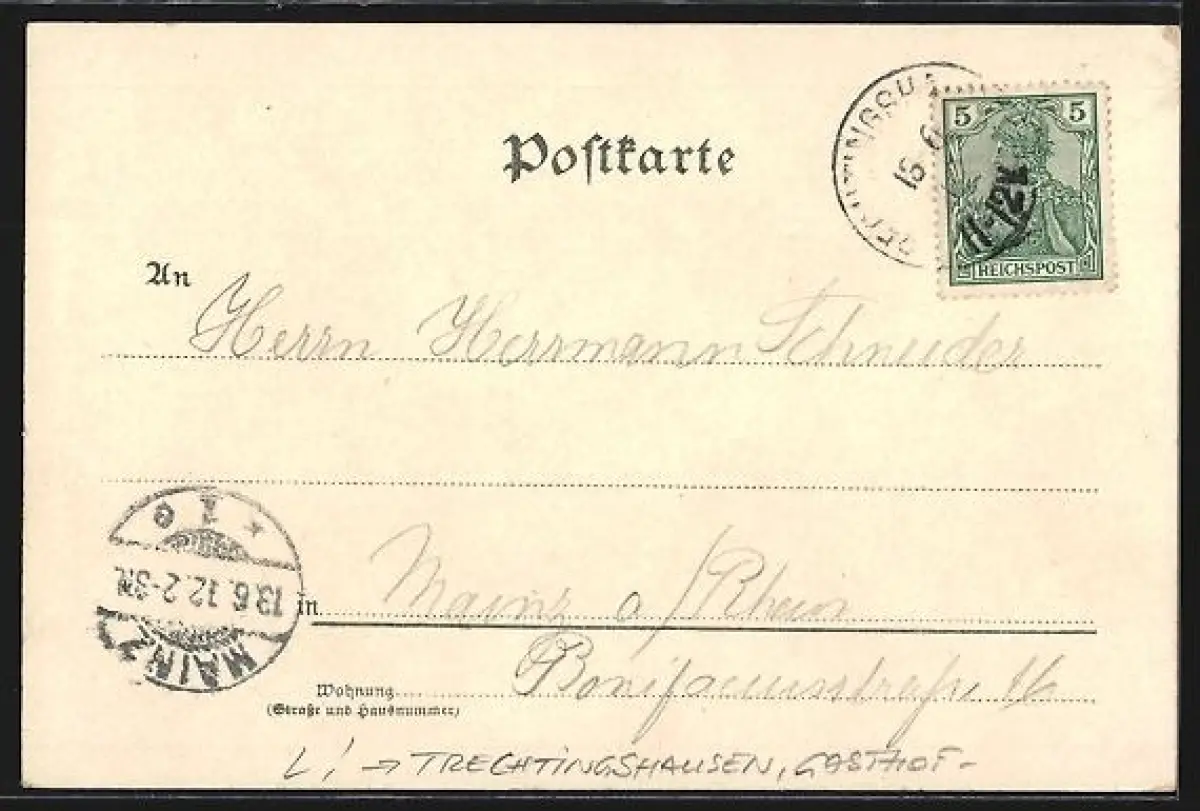 5 5
REICHSPOST
11-12V.
Postkarte
An
Herrn Herrmann Schneider
13.6.12.2-3N.
MAINZ
in Mainz a/Rhein
Wohnung
(Straße und Hausnummer)
L! → TRECHTINGSHAUSEN, GASTHOF-